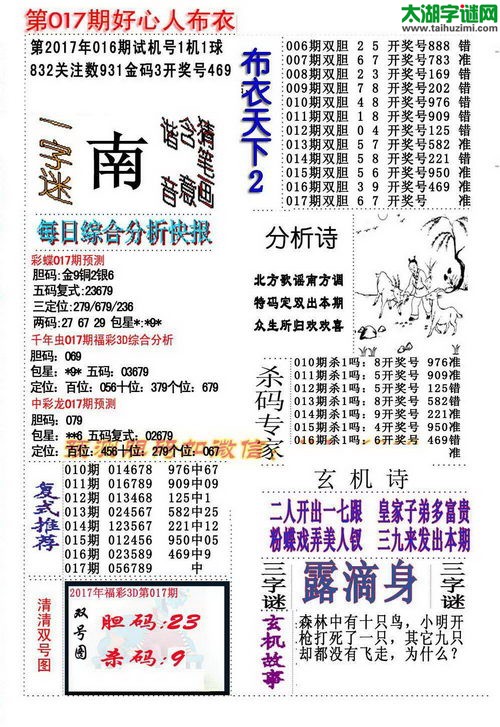 第017期好心人布衣
太湖字谜网
www.taihuzimi.com
第2017年016期试机号1机1球
832关注数931金码3开奖号469
一字迷
南
猜笔画
含意
猜音
布衣天下2
006期双胆 2 5 开奖号888 错
007期双胆 6 7 开奖号783 准
008期双胆 2 3 开奖号169 错
009期双胆 7 8 开奖号202 错
010期双胆 4 8 开奖号976 错
011期双胆 1 8 开奖号909 错
012期双胆 0 4 开奖号125 错
013期双胆 5 7 开奖号582 准
014期双胆 5 8 开奖号221 错
015期双胆 5 6 开奖号950 准
016期双胆 3 9 开奖号469 准
017期双胆 6 7 开奖号
每日综合分析快报
彩蝶017期预测
胆码:金9铜2银6
五码复式:23679
三定位:279/679/236
两码:27 67 29 包星*:*9*
千年虫017期福彩3D综合分析
胆码: 069
包星: *9* 五码: 03679
定位: 百位: 056十位: 379个位: 679
中彩龙017期预测
胆码: 079
包星: **6 五码复式: 02679
定位: 百位: 456十位: 279个位: 067
分析诗
北方歌谣南方调
特码定双出本期
众生所归欢欢喜
杀码专家
010期杀1吗: 8开奖号 976准
011期杀1吗: 5开奖号 909准
012期杀1吗: 5开奖号 125错
013期杀1吗: 9开奖号 582准
014期杀1吗: 6开奖号 221准
015期杀1吗: 4开奖号 950准
016期杀1吗: 6开奖号 469错
复式推荐
010期 014678 976中67
011期 016789 909中09
012期 013468 125中1
013期 024567 582中25
014期 123567 221中12
015期 012456 950中05
016期 023589 469中9
017期 056789 中
玄机诗
二人开出一七跟 皇家子弟多富贵
粉蝶戏弄美人钗 三九来发出本期
三字谜
露滴身
三字谜
清清双号图
2017年福彩3D第017期
双号图
胆码:23
杀码:9
玄机故事
森林中有十只鸟，小明开
枪打死了一只，其它九只
却都没有飞走，为什么?